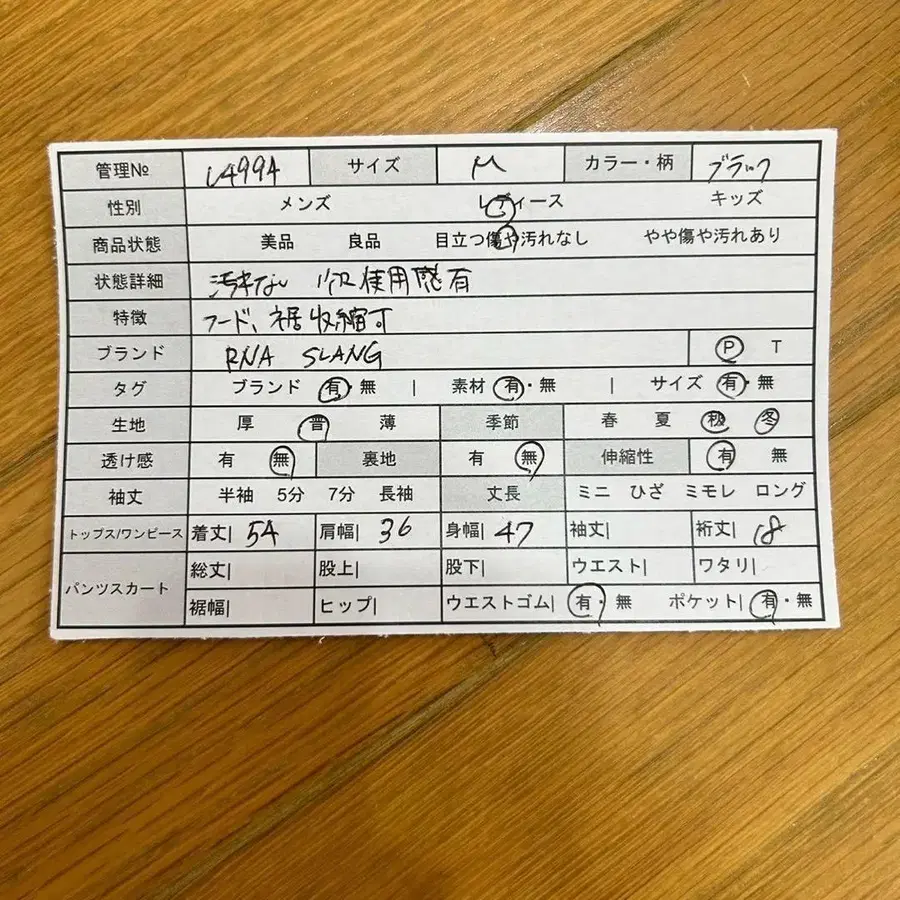 管理№ U4994 サイズ M カラー・柄 ブラック
性別 メンズ レディース キッズ
商品状態 美品 良品 目立つ傷や汚れなし やや傷や汚れあり
状態詳細 汚れない 使用感有
特徴 フード、裾収縮可
ブランド RNA SLANG P T
タグ ブランド 有・無 | 素材 有・無 | サイズ 有・無
生地 厚 普 薄 季節 春 夏 秋 冬
透け感 有 無 裏地 有 無 伸縮性 有 無
袖丈 半袖 5分 7分 長袖 丈長 ミニ ひざ ミモレ ロング
トップス/ワンピース 着丈| 54 肩幅| 36 身幅| 47 袖丈| 裄丈| 18
パンツスカート 総丈| 股上| 股下| ウエスト| ワタリ|
裾幅| ヒップ| ウエストゴム| 有・無 ポケット| 有・無